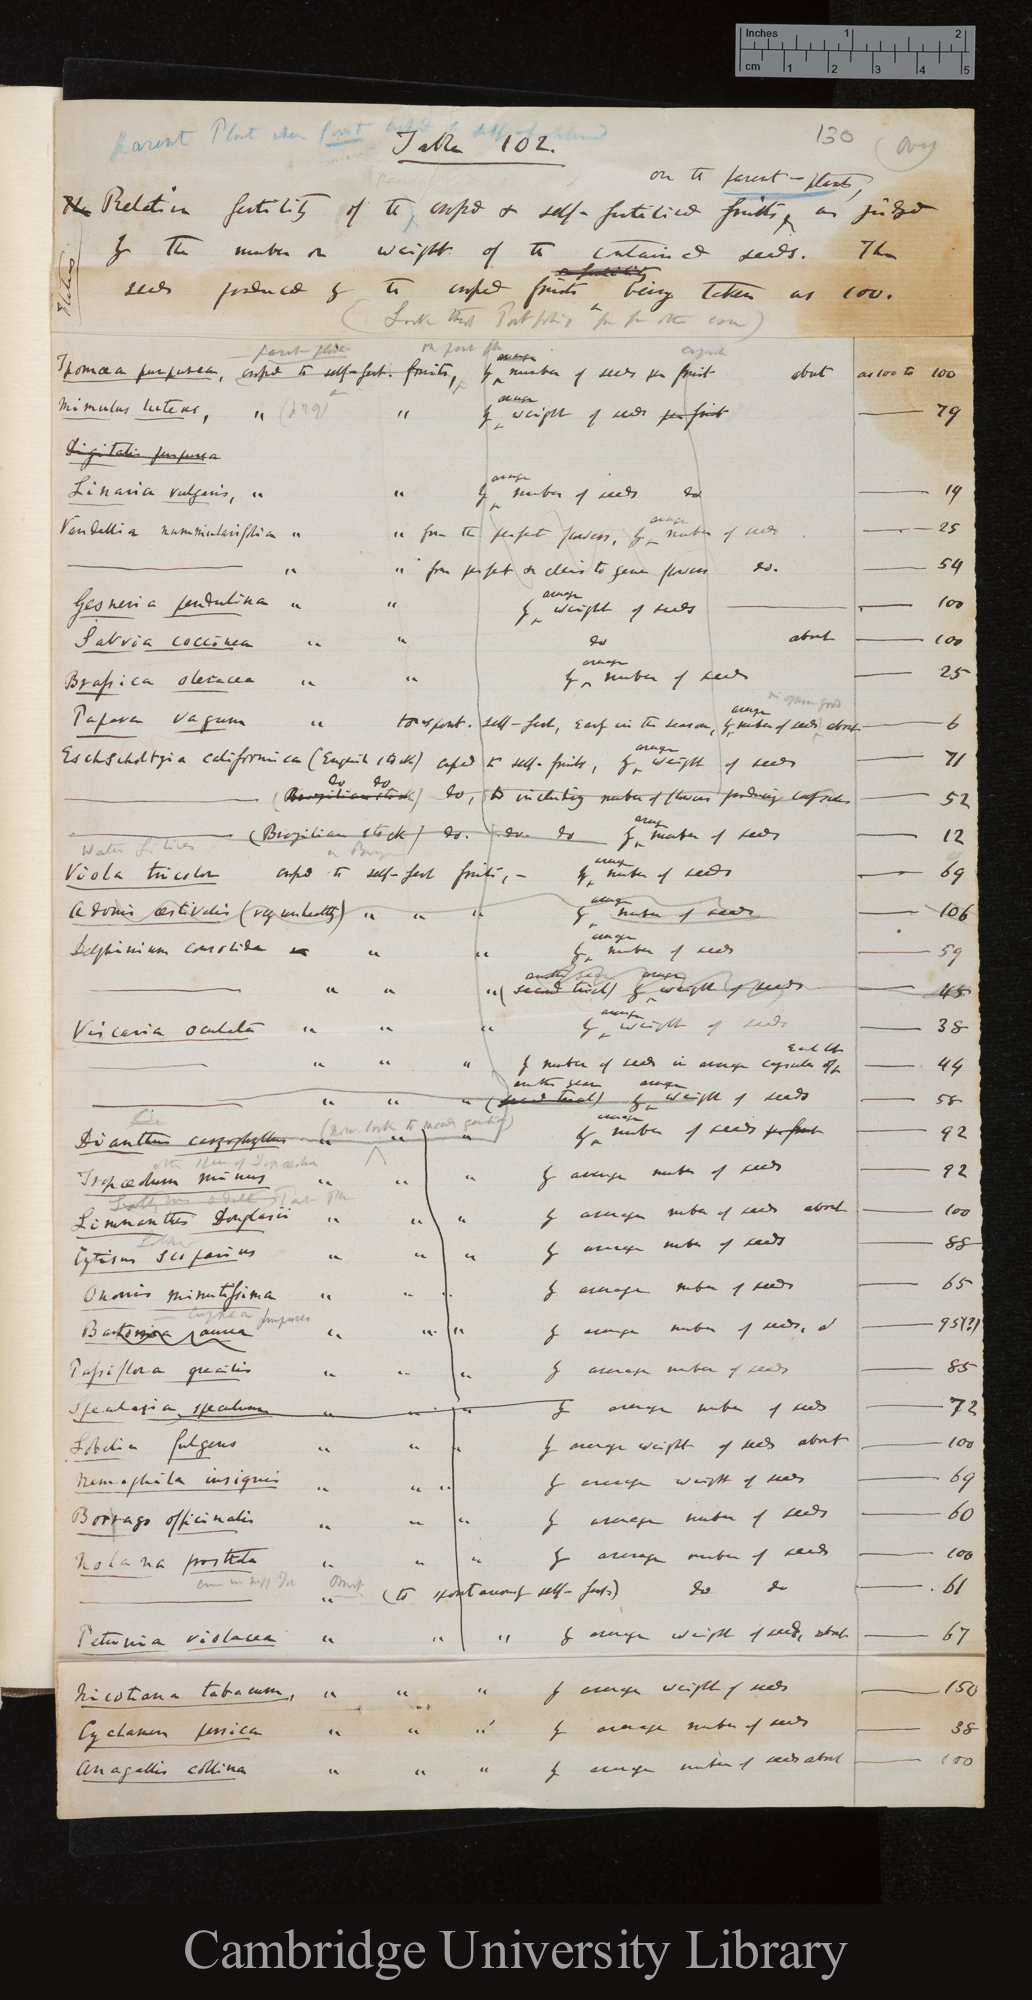 Inches 1 2
cm 1 2 3 4 5
Parent Plant when
Table 102.
130
(Over)
on the parent-plants,
The Relative fertility of the crossed & self-fertilised fruits, as judged
by the number or weight of the contained seeds. The
seeds produced by the crossed fruits being taken as 100.
(Look thro' Portfolio
Ipomœa purpurea, crossed to self-fert. fruits, by average number of seeds per fruit about as 100 to 100
Mimulus luteus, " " by average weight of seeds per fruit — 79
Digitalis purpurea
Linaria vulgaris, " " by average number of seeds do — 14
Vandellia nummularifolia " " from the perfect flowers, by average number of seeds — 25
— " " from perfect & cleistogene flowers do. — 54
Gesneria pendulina " " by average weight of seeds — 100
Salvia coccinea " " do about — 100
Brassica oleracea " " by average number of seeds — 25
Papaver vagum " to spont. self-fert, early in the season, by average number of seeds, about — 6
Eschscholtzia californica (English stock) crossed to self-fruits, by average weight of seeds — 71
— (Brazilian stock) do do do, to including number of flowers producing capsules — 52
— (Brazilian stock) do. do. do by average number of seeds — 12
Viola tricolor crossed to self-fert fruits, — by average number of seeds — 69
Adonis æstivalis (very unhealthy) " " " by average number of seeds — 106
Delphinium consolida " " by average number of seeds — 59
— " " " (second trial) by average weight of seeds — 45
Viscaria oculata " " " by average weight of seeds — 38
— " " " by number of seeds in average capsules — 44
— " " " (second trial) another year by average weight of seeds — 58
Dianthus caryophyllus " " " by average number of seeds per fruit — 92
Tropæolum minus " " " by average number of seeds — 92
Limnanthes Douglasii " " " by average number of seeds about — 100
Cytisus scoparius " " " by average number of seeds — 88
Ononis minutissima " " " by average number of seeds — 65
Bartonia aurea " " " by average number of seeds, — 95(?)
Passiflora gracilis " " " by average number of seeds — 85
Specularia speculum " " " by average number of seeds — 72
Lobelia fulgens " " " by average weight of seeds about — 100
Nemophila insignis " " " by average weight of seeds — 69
Borrago officinalis " " " by average number of seeds — 60
Nolana prostrata " " " by average number of seeds — 100
— " (to spontaneously self-fert.) do do — 61
Petunia violacea " " " by average weight of seeds, about — 67
Nicotiana tabacum, " " " by average weight of seeds — 150
Cyclamen persicum " " " by average number of seeds — 38
Anagallis collina " " " by average number of seeds about — 100
Cambridge University Library